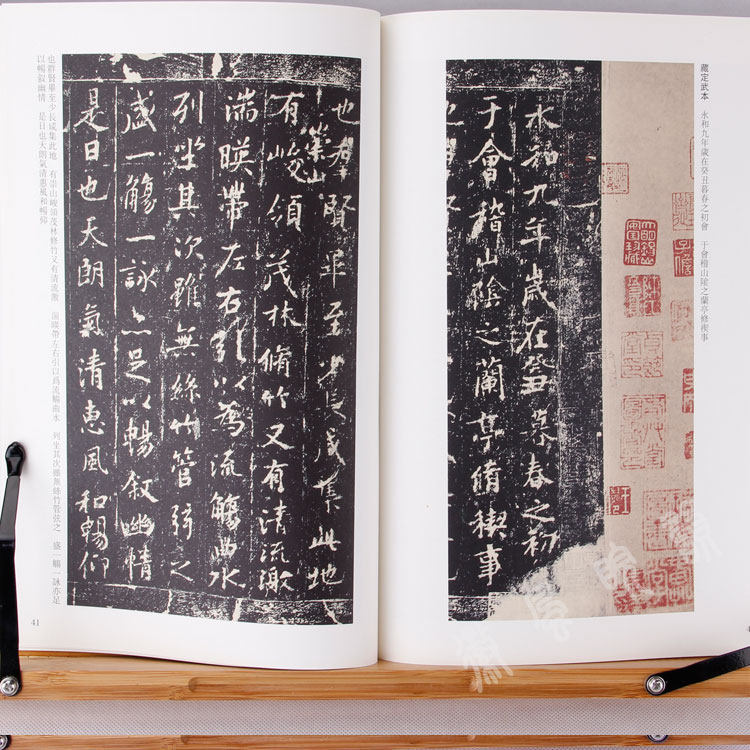 藏定武本 永和九年歲在癸丑暮春之初會 于會稽山陰之蘭亭修禊事
永和九年歲在癸丑暮春之初
于會稽山陰之蘭亭脩禊事
也羣賢畢至少長咸集此地
有崇山峻領茂林脩竹又有清流激
湍暎帶左右引以為流觴曲水
列坐其次雖無絲竹管弦之
盛一觴一詠亦足以暢叙幽情
是日也天朗氣清惠風和暢仰
也群賢畢至少長咸集此地 有崇山峻領茂林修竹又有清流激 湍暎帶左右引以爲流觴曲水 列坐其次雖無絲竹管弦之 盛一觴一詠亦足
以暢叙幽情 是日也天朗氣清惠風和暢仰
41